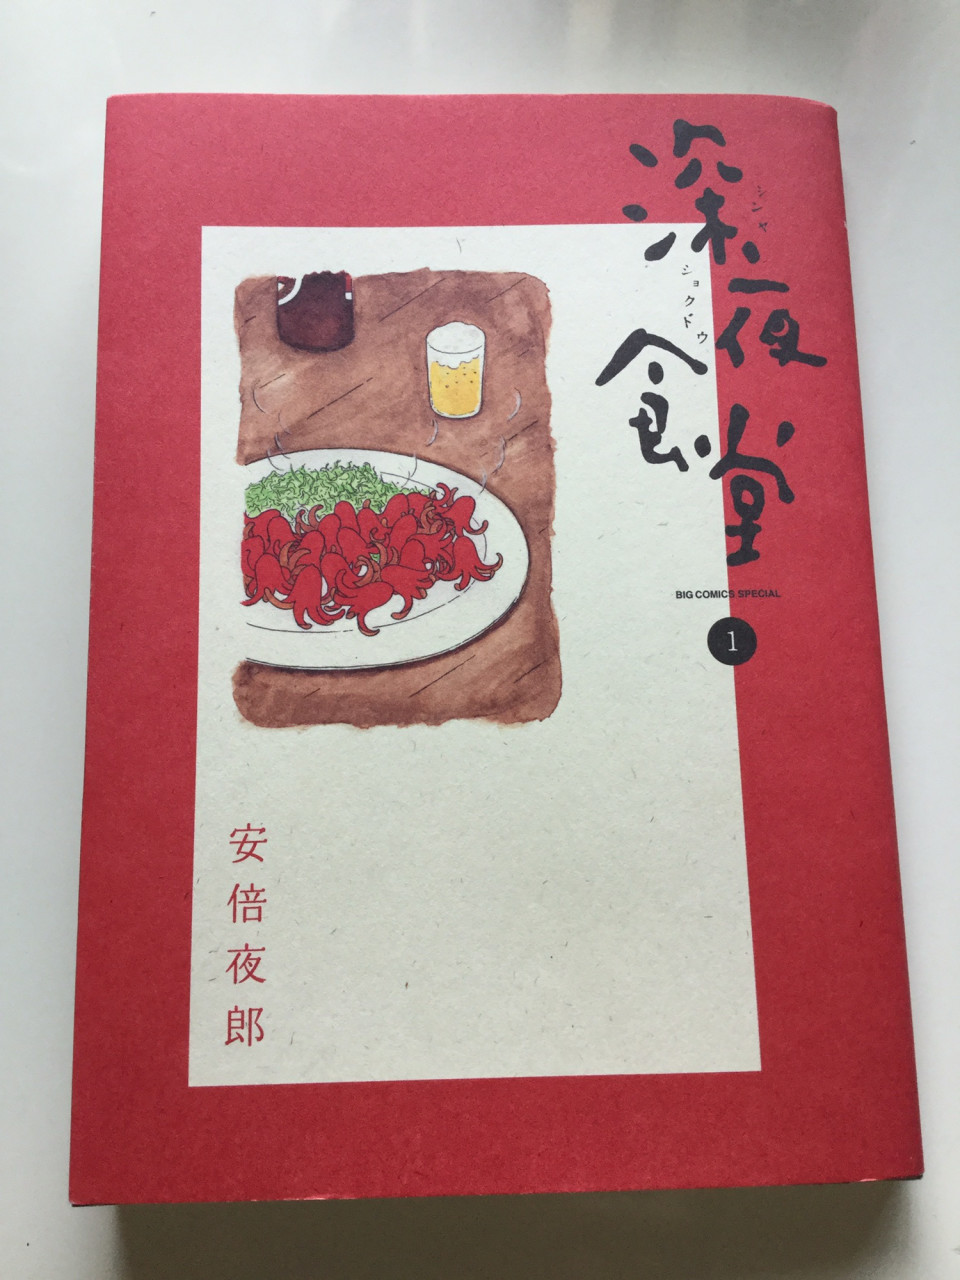 深夜食堂
シンヤ
ショクドウ
BIG COMICS SPECIAL
1
安倍夜郎